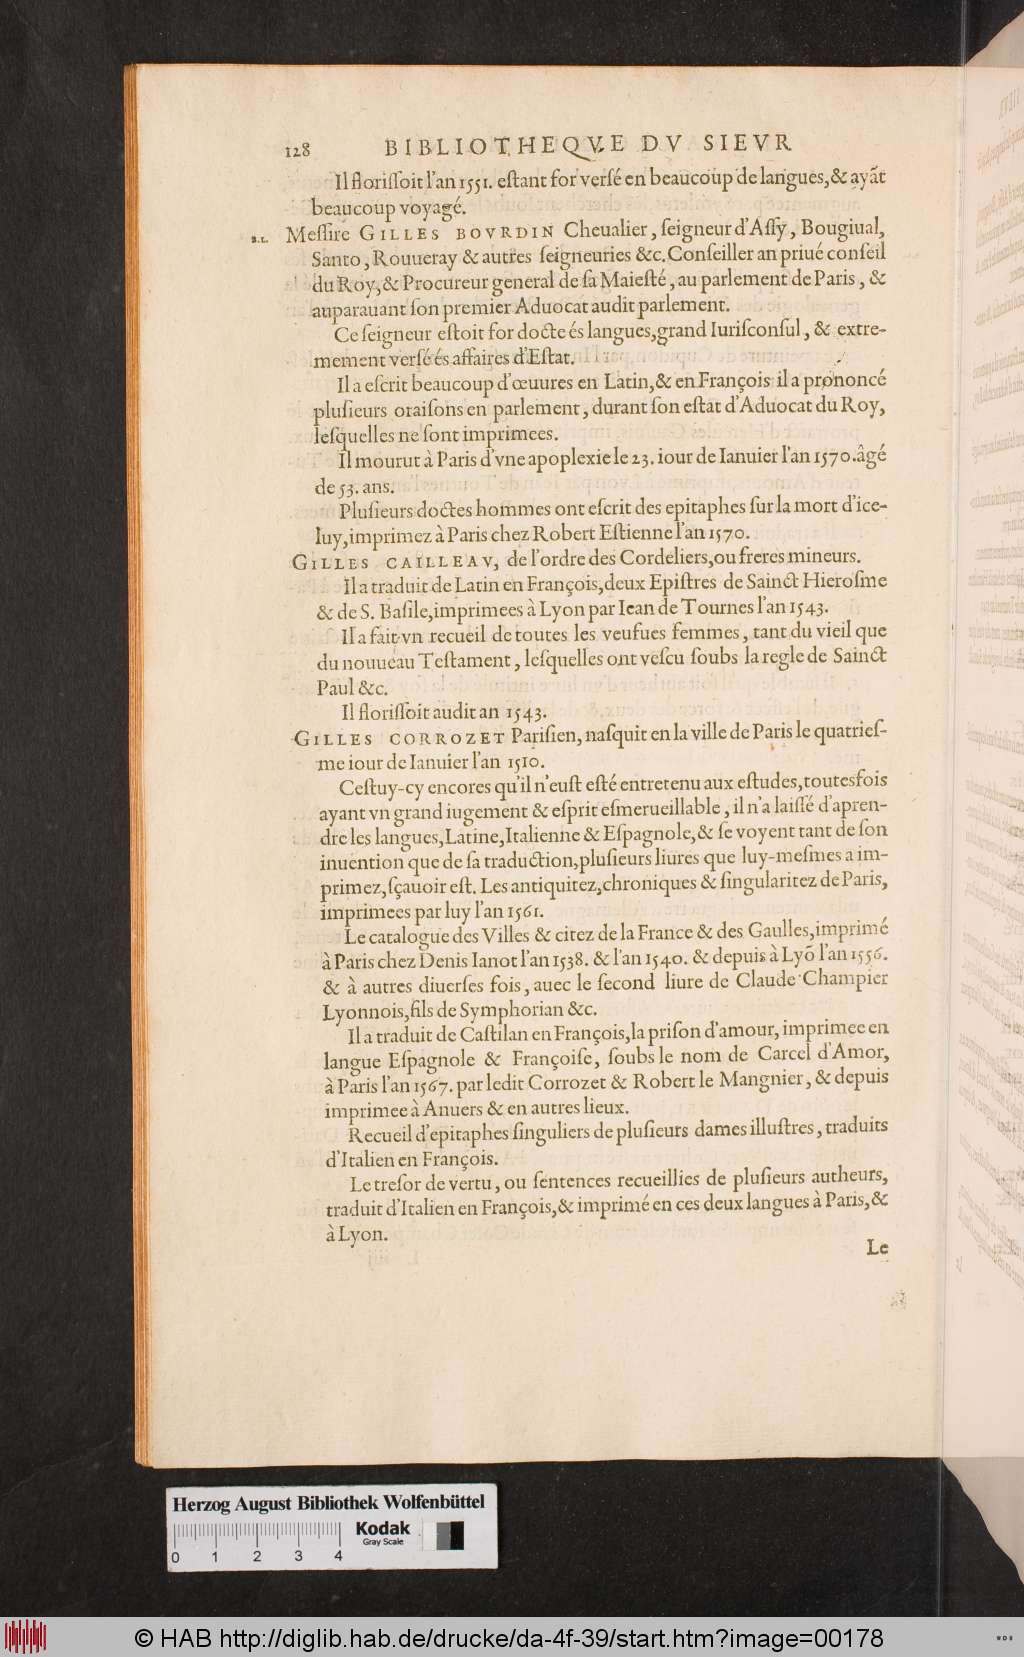 128 BIBLIOTHEQVE DV SIEVR
Il floriſſoit l'an 1551. eſtant for verſé en beaucoup de langues,& ayāt
beaucoup voyagé.
B.L. Meſſire GILLES BOVRDIN Cheualier, ſeigneur d'Aſſy, Bougiual,
Santo, Rouueray & autres ſeigneuries &c. Conſeiller an priué conſeil
du Roy, & Procureur general de ſa Maieſté, au parlement de Paris, &
auparauant ſon premier Aduocat audit parlement.
Ce ſeigneur eſtoit for docte és langues, grand Iuriſconſul, & extre-
mement verſé és affaires d'Eſtat.
Il a eſcrit beaucoup d'œuures en Latin, & en François il a prononcé
pluſieurs oraiſons en parlement, durant ſon eſtat d'Aduocat du Roy,
leſquelles ne ſont imprimees.
Il mourut à Paris d'vne apoplexie le 23. iour de Ianuier l'an 1570. âgé
de 53. ans.
Pluſieurs doctes hommes ont eſcrit des epitaphes ſur la mort d'ice-
luy, imprimez à Paris chez Robert Eſtienne l'an 1570.
GILLES CAILLEAV, de l'ordre des Cordeliers, ou freres mineurs.
Il a traduit de Latin en François, deux Epiſtres de Sainct Hieroſme
& de S. Baſile, imprimees à Lyon par Iean de Tournes l'an 1543.
Il a fait vn recueil de toutes les veufues femmes, tant du vieil que
du nouueau Teſtament, leſquelles ont veſcu ſoubs la regle de Sainct
Paul &c.
Il floriſſoit audit an 1543.
GILLES CORROZET Pariſien, naſquit en la ville de Paris le quatrieſ-
me iour de Ianuier l'an 1510.
Ceſtuy-cy encores qu'il n'euſt eſté entretenu aux eſtudes, toutesfois
ayant vn grand iugement & eſprit eſmerueillable, il n'a laiſſé d'apren-
dre les langues, Latine, Italienne & Eſpagnole, & ſe voyent tant de ſon
inuention que de ſa traduction, pluſieurs liures que luy-meſmes a im-
primez, ſçauoir eſt. Les antiquitez, chroniques & ſingularitez de Paris,
imprimees par luy l'an 1561.
Le catalogue des Villes & citez de la France & des Gaulles, imprimé
à Paris chez Denis Ianot l'an 1538. & l'an 1540. & depuis à Lyō l'an 1556.
& à autres diuerſes fois, auec le ſecond liure de Claude Champier
Lyonnois, fils de Symphorian &c.
Il a traduit de Caſtilan en François, la priſon d'amour, imprimee en
langue Eſpagnole & Françoiſe, ſoubs le nom de Carcel d'Amor,
à Paris l'an 1567. par ledit Corrozet & Robert le Mangnier, & depuis
imprimee à Anuers & en autres lieux.
Recueil d'epitaphes ſinguliers de pluſieurs dames illuſtres, traduits
d'Italien en François.
Le treſor de vertu, ou ſentences recueillies de pluſieurs autheurs,
traduit d'Italien en François, & imprimé en ces deux langues à Paris, &
à Lyon.
Le
Herzog August Bibliothek Wolfenbüttel
Kodak
Gray Scale
0 1 2 3 4
© HAB http://diglib.hab.de/drucke/da-4f-39/start.htm?image=00178